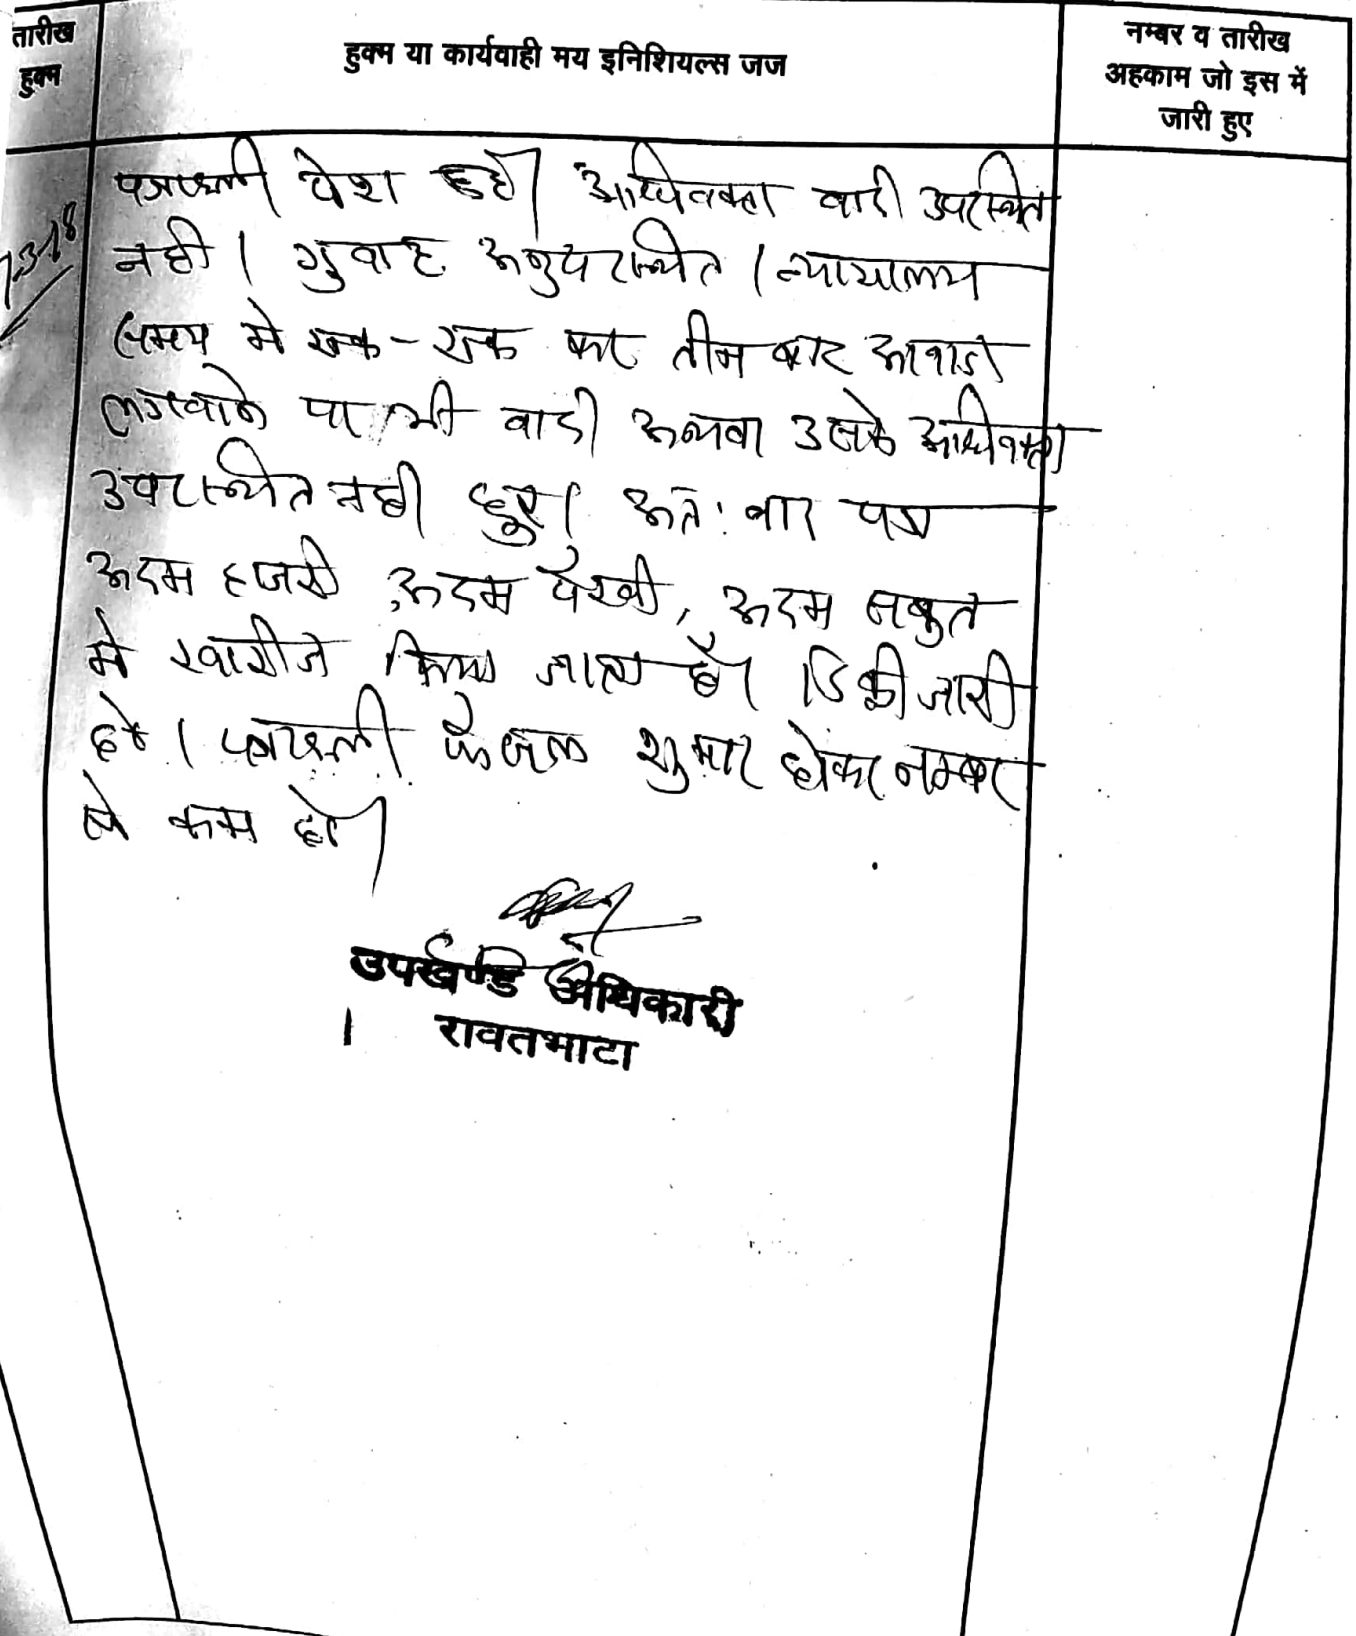 तारीख
हुक्म
हुक्म या कार्यवाही मय इनिशियल्स जज
नम्बर व तारीख
अहकाम जो इस में
जारी हुए
पत्रावली पेश हुई। अधिवक्ता वादी उपस्थित
नही। गुवाह अनुपस्थित। न्यायालय
समय मे एक-एक कर तीन बार आवाज
लगवाने पर भी वादी अथवा उसके अधिवक्ता
उपस्थित नही हुए। अतः वाद पत्र
अदम हाजरी, अदम पैरवी, अदम सबुत
मे खारीज किया जाता है। डिक्री जारी
हो। पत्रावली फैसल शुमार होकर नम्बर
से कम हो।
उपखण्ड अधिकारी
रावतभाटा